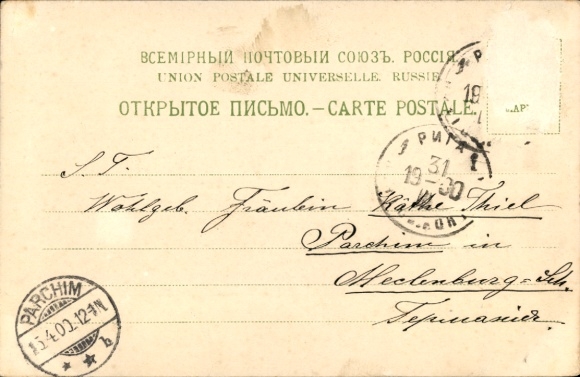 ВСЕМІРНЫЙ ПОЧТОВЫЙ СОЮЗЪ. РОССІЯ.
UNION POSTALE UNIVERSELLE. RUSSIE
ОТКРЫТОЕ ПИСЬМО.—CARTE POSTALE.
РИГА
31
19 00
S. T.
Wohlgeb. Fräulein Käthe Thiel
Parchim in
Meclenburg=Sch.
Германія.
PARCHIM